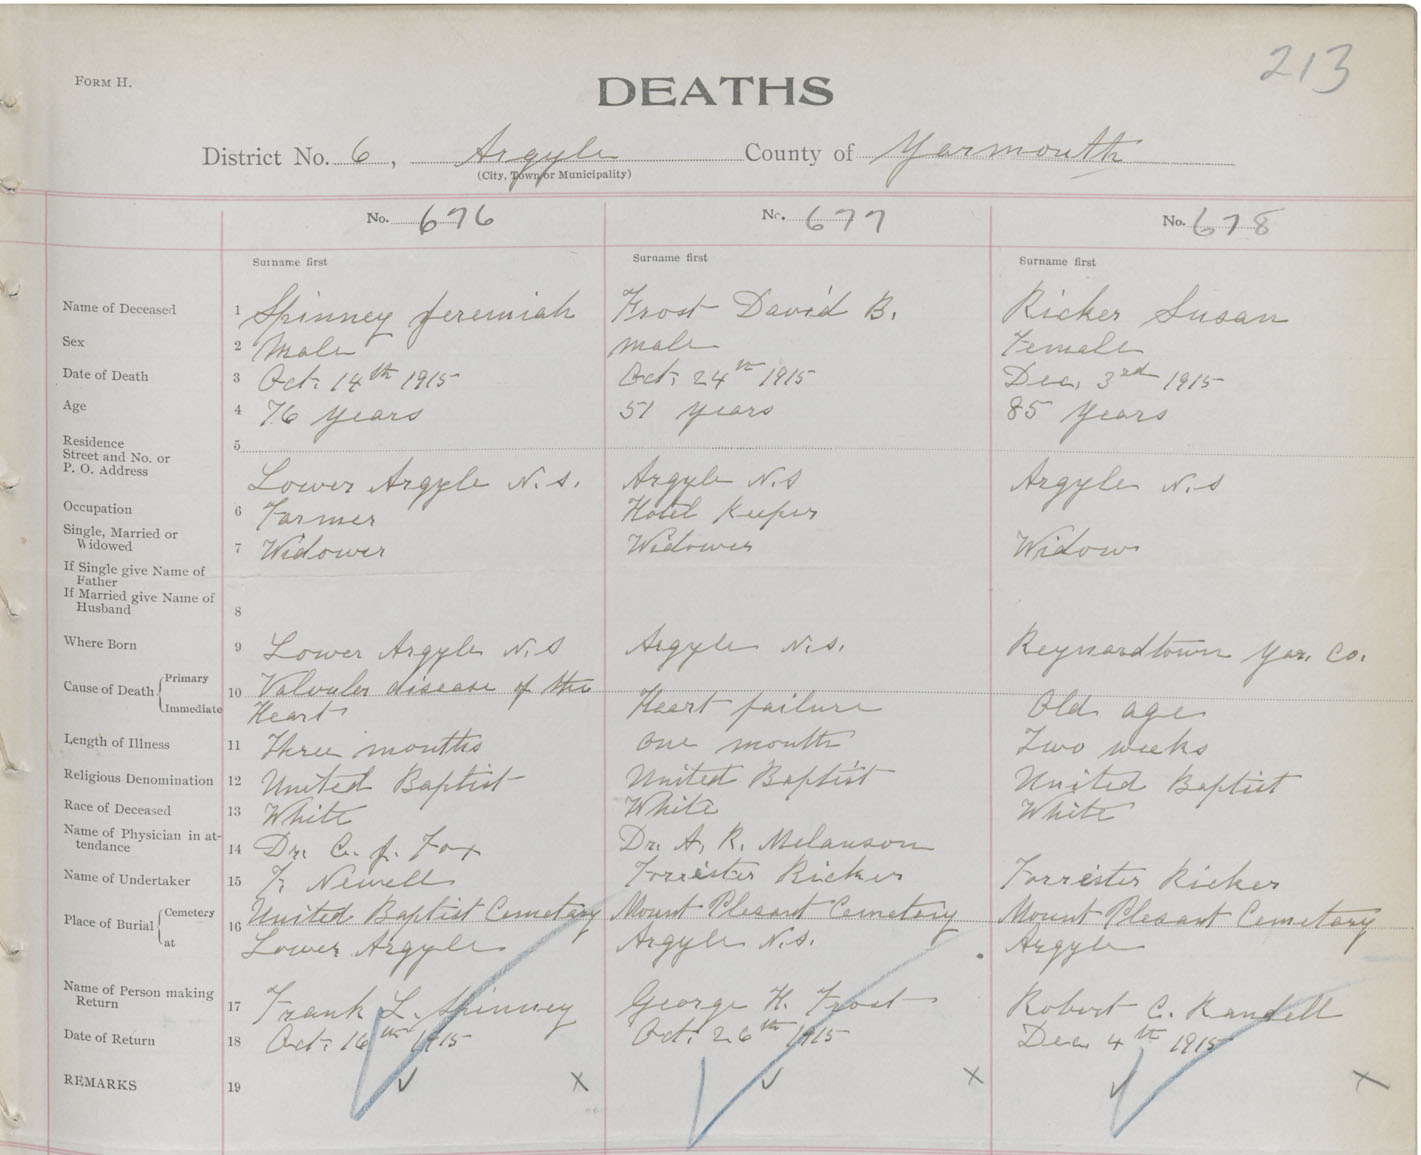 213
FORM H.
DEATHS
District No. 6, Argyle County of Yarmouth
(City, Town or Municipality)
No. 676 No. 677 No. 678
Surname first Surname first Surname first
Name of Deceased 1 Spinney Jeremiah Frost David B. Ricker Susan
Sex 2 Male male Female
Date of Death 3 Oct. 14th 1915 Oct. 24th 1915 Dec. 3rd 1915
Age 4 76 years 51 years 85 years
Residence 5
Street and No. or
P. O. Address
Lower Argyle N.S. Argyle N.S Argyle N.S
Occupation 6 Farmer Hotel Keeper
Single, Married or
Widowed 7 Widower Widower Widow
If Single give Name of
Father
If Married give Name of
Husband 8
Where Born 9 Lower Argyle N.S Argyle N.S. Reynardtown Yar. Co.
Cause of Death Primary 10 Valvuler disease of the
Immediate Heart Heart failure Old age
Length of Illness 11 Three months one month Two weeks
Religious Denomination 12 United Baptist United Baptist United Baptist
Race of Deceased 13 White White White
Name of Physician in at-
tendance 14 Dr. C. J. Fox Dr. A. R. Melanson
Name of Undertaker 15 F. Newell Forrister Ricker Forrester Ricker
Place of Burial Cemetery 16 United Baptist Cemetary Mount Plesant Cemetary Mount Plesant Cemetary
at Lower Argyle Argyle N.S. Argyle
Name of Person making
Return 17 Frank L. Spinney George H. Frost Robert C. Randell
Date of Return 18 Oct. 16th 1915 Oct. 26th 1915 Dec. 4th 1915
REMARKS 19 ✓ X ✓ X ✓ X